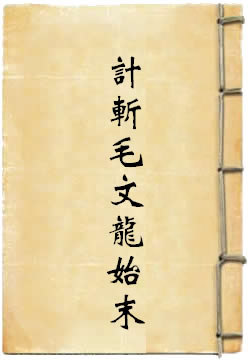 計斬毛文龍始末